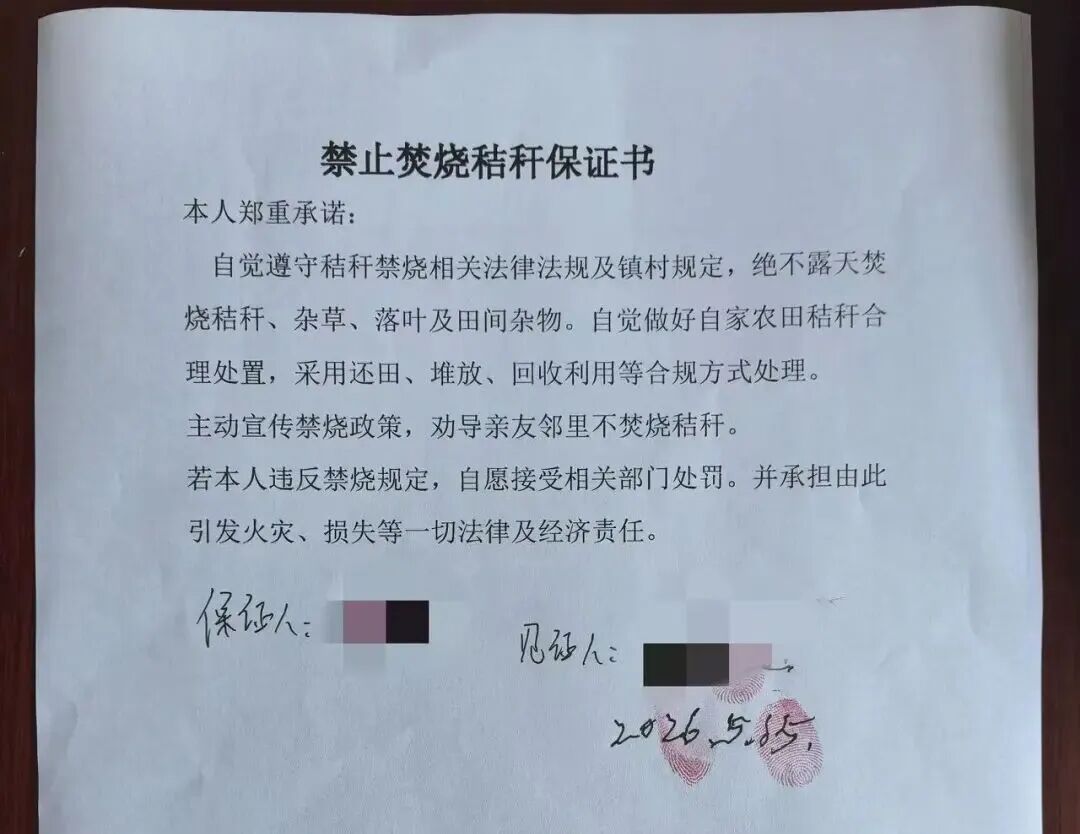 禁止焚烧秸秆保证书
本人郑重承诺：
自觉遵守秸秆禁烧相关法律法规及镇村规定，绝不露天焚
烧秸秆、杂草、落叶及田间杂物。自觉做好自家农田秸秆合
理处置，采用还田、堆放、回收利用等合规方式处理。
主动宣传禁烧政策，劝导亲友邻里不焚烧秸秆。
若本人违反禁烧规定，自愿接受相关部门处罚。并承担由此
引发火灾、损失等一切法律及经济责任。
保证人：
见证人：
2026.5.15.